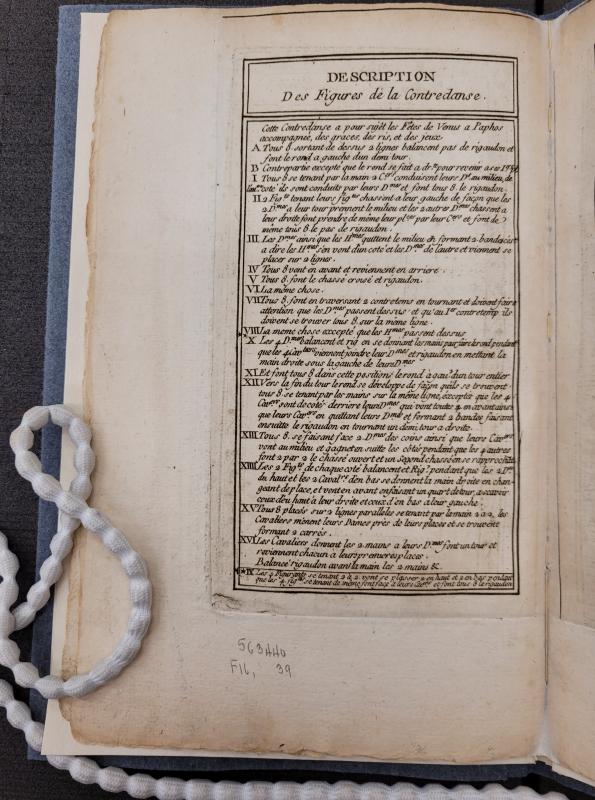 DESCRIPTION
Des Figures de la Contredanse.
Cette Contredanse a pour sujet les Fêtes de Venus a Paphos
accompagnée, des graces, des ris, et des jeux.
A Tous 8. sortant de dessus 2 lignes balancent pas de rigaudon et
font le rond a gauche d'un demi tour.
B Contrepartie excepté que le rond se fait a dr.te pour revenir a ses
I Tous 8 se tenant par la main 2 C.ers conduisent leurs D.es au milieu, de
coté ils sont conduits par leurs D.mes et font tous 8. le rigaudon.
II 2 Fig.ts tenant leurs fig.tes chassent a leur gauche de façon que les
2 D.mes a leur tour prennent le milieu et les 2 autres D.mes chassent a
leur droite font prendre de même leur pl.ces par leur C.ers et font de
même tous 8 le pas de rigaudon.
III Les D.mes ainsi que les H.mes quittent le milieu en formant 2 bandes c'est
a dire les H.mes s'en vont d'un coté et les D.mes de l'autre et viennent se
placer sur 2 lignes.
IV Tous 8 vont en avant et reviennent en arriere.
V Tous 8. font le chassé croisé et rigaudon.
VI La même chose.
VII Tous 8. font en traversant 2 contretems en tournant et doivent faire
attention que les D.mes passent dessus et qu'au 1.er contretemp ils
doivent se trouver tous 8. sur la même ligne.
*VIII La meme chose excepté que les H.mes passent dessus
X Les 4 D.mes balancent et rig en se donnant les mains pour faire le rond pendant
que les 4 Cav.liers viennent joindre leur D.mes et rigaudon en mettant la
main droite sous la gauche de leurs D.mes
XI Et font tous 8 dans cette position le rond a gau.e d'un tour entier
XII Vers la fin du tour le rond se développe de façon qu'ils se trouvent
tous 8 se tenant par les mains sur la même ligne, excepté que les 4
Cav.ers sont de coté derriere leurs D.mes qui vont toutes 4 en avant ainsi
que leurs Cav.ers en quittant leurs D.mes et formant 2 bandes faisant
ensuitte le rigaudon en tournant un demi tour a droite.
XIII Tous 8. se faisant face 2 D.mes des coins ainsi que leurs Cav.ers
vont au milieu et gagnent en suitte les côtés pendant que les 4 autres
font 2 par 2 le chassé ouvert et un second chassé en se rapprochant
XIIII Les 2 Fig.ts de chaque coté balancent et Rig.n pendant que les 2 D.es
du haut et les 2 Caval.ers d'en bas se donnent la main droite en chan-
geant de place, et vont en avant en faisant un quart de tour a scavoir
ceux d'en haut à leur droite et ceux d'en bas a leur gauche.
XV Tous 8 placés sur 2 lignes paralleles se tenant par la main 2 a 2, les
Cavaliers mènent leurs Dames près de leurs places et se trouvent
formant 2 carrés.
XVI Les Cavaliers donnent les 2 mains a leurs D.mes font un tour et
reviennent chacun a leurs premieres places.
Balancé rigaudon avant la main les 2 mains &.
*IX Les 4 Figurants se tenant 2 à 2 vont se placer 2 en haut et 2 en bas pendant
que les 4 fig.tes se tenant de même font face a leurs Cav.ers et font tous 8 le rigaudon
563440
F16, 39